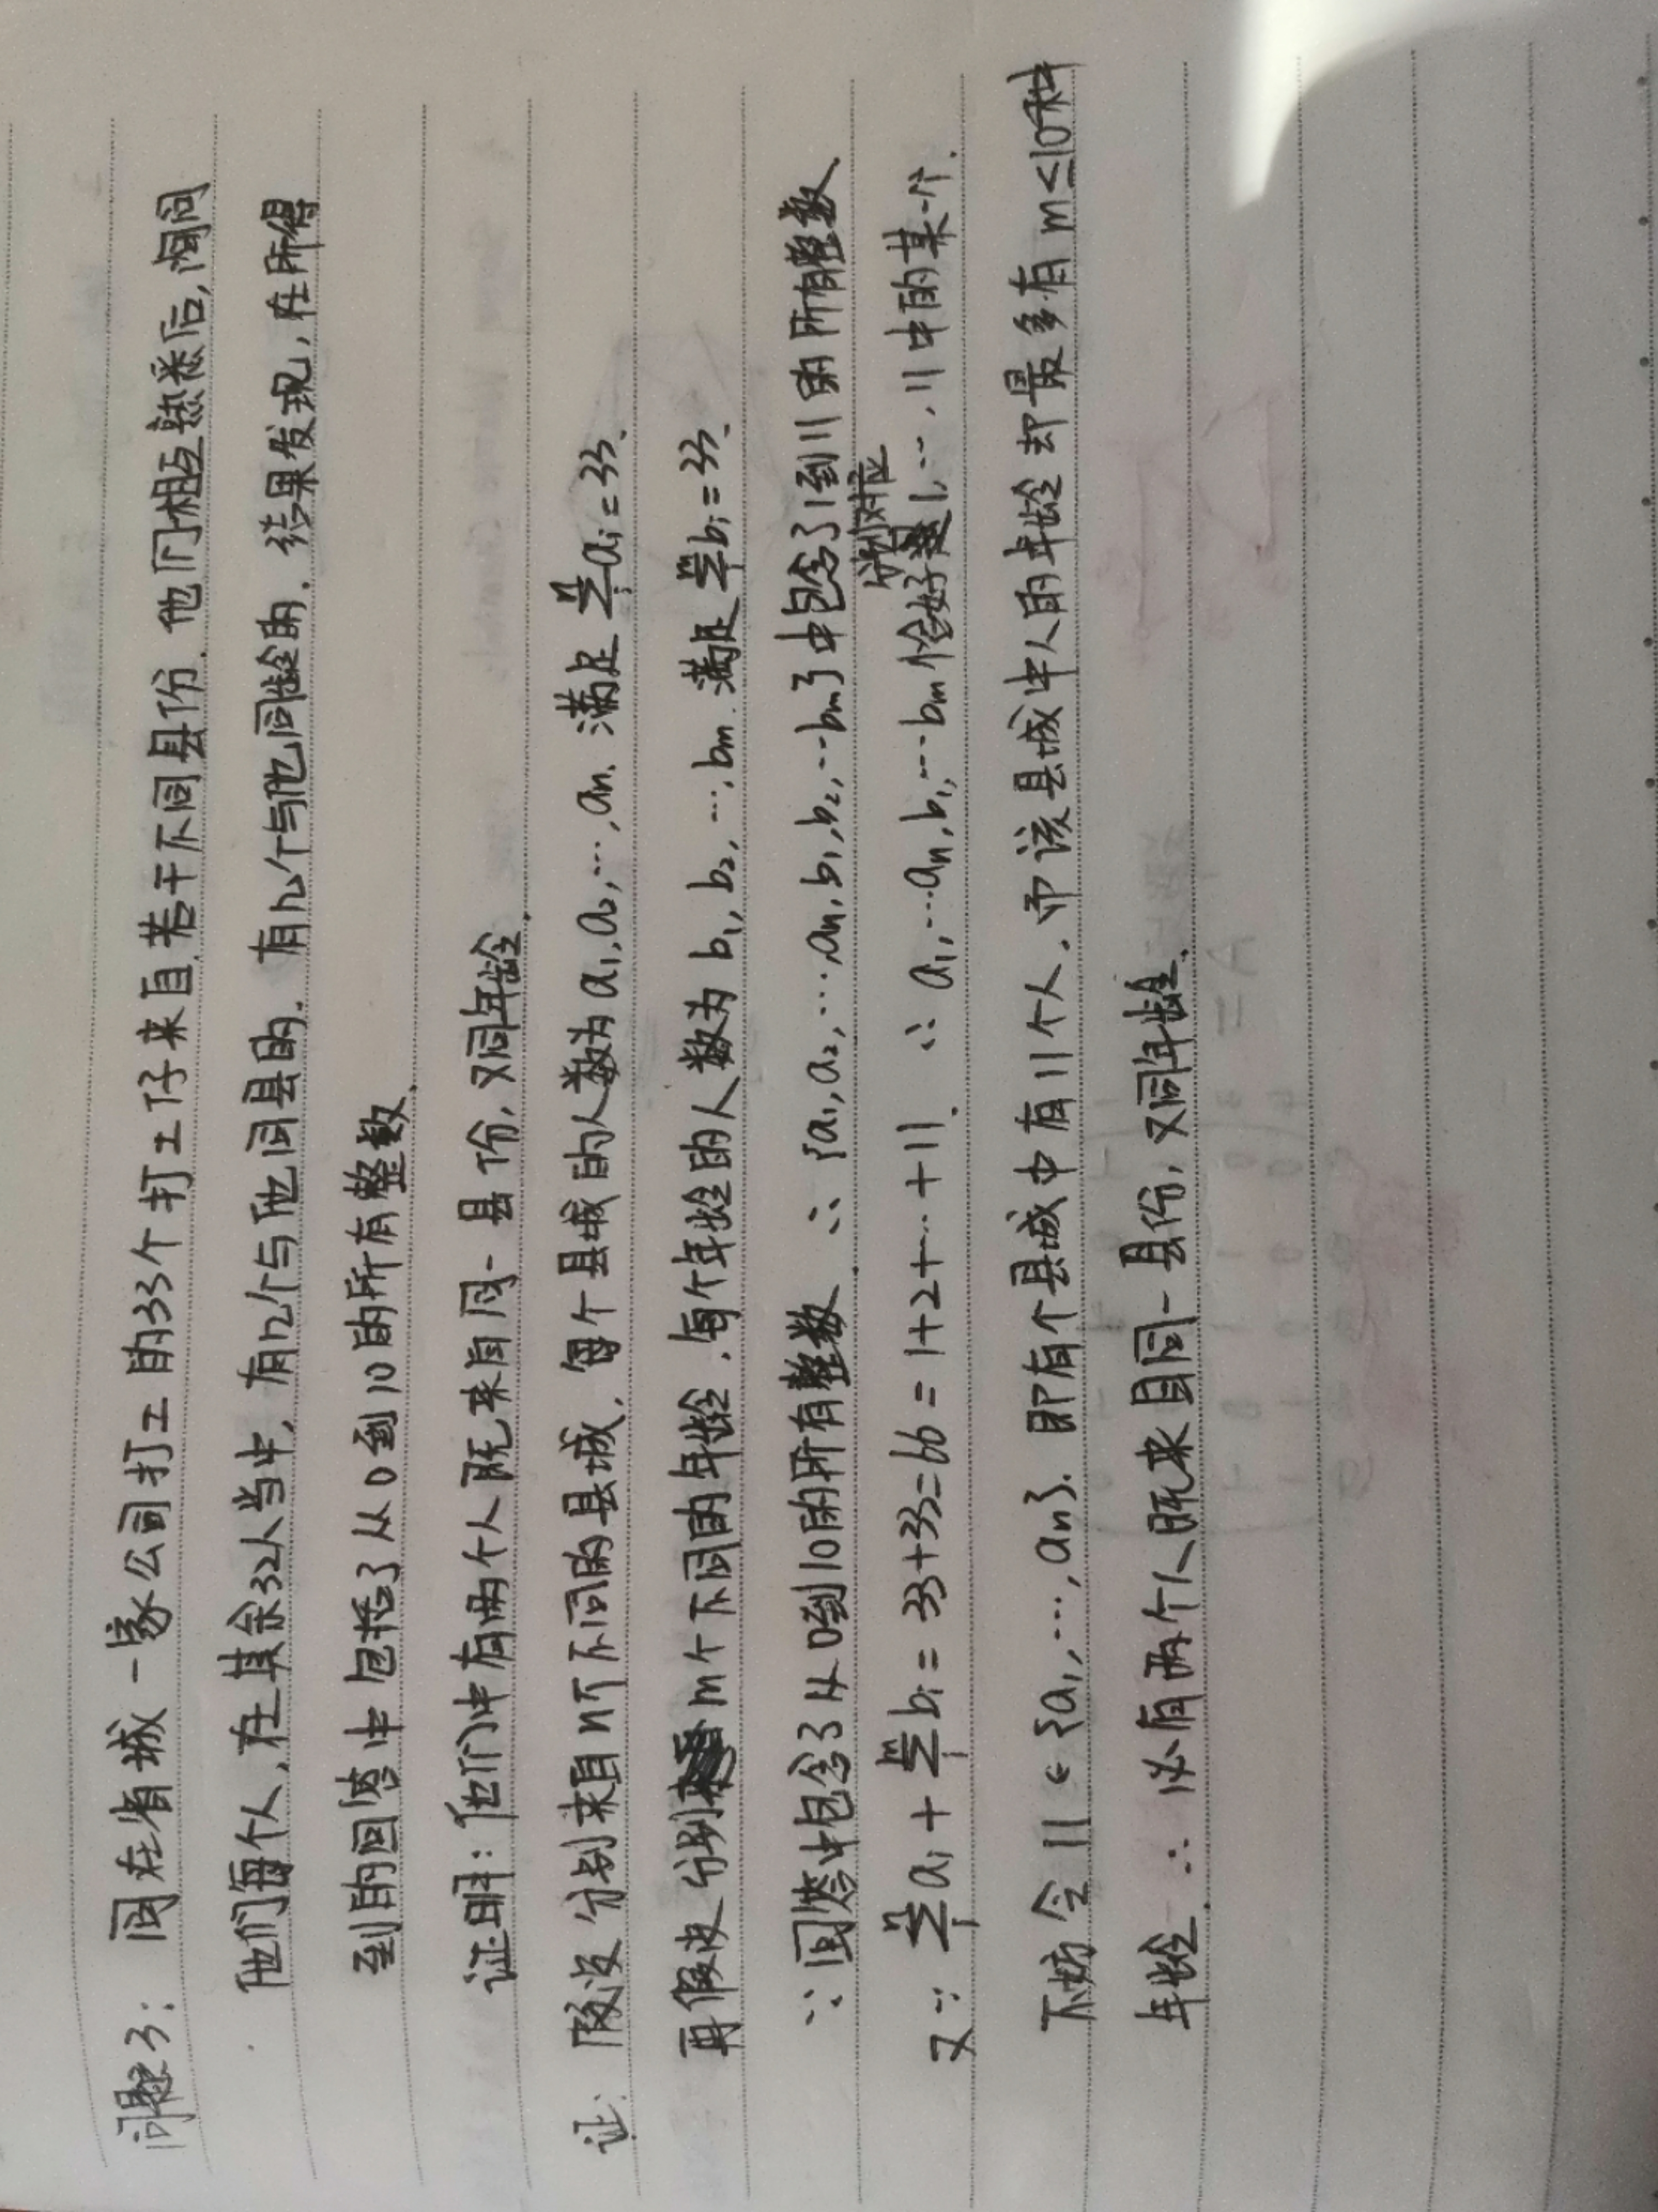 问题3: 同在省城一家公司打工的33个打工仔来自若干不同县份.他们相互熟悉后,询问
他们每个人,在其余32人当中,有几个与他同县的.有几个与他同龄的.结果发现,在所得
到的回答中包括了从0到10的所有整数.
证明:他们中有两个人既来自同一县份,又同年龄.
证: 假设分别来自n个不同的县城,每个县城的人数为a₁,a₂,…,aₙ.满足 ⁿΣᵢ₌₁ aᵢ=33.
再假设分别 m个不同的年龄.每个年龄的人数为 b₁,b₂,…,bₘ.满足 ᵐΣᵢ₌₁ bᵢ=33.
∵ 回答中包含了从0到10的所有整数.∴ {a₁,a₂,…,aₙ,b₁,b₂,…bₘ}中包含了1到11的所有整数.
又∵ ⁿΣᵢ₌₁ aᵢ + ᵐΣᵢ₌₁ bᵢ = 33+33=66=1+2+…+11. ∴ a₁,…aₙ,b₁,…bₘ恰好分别对应1,…,11中的某一个.
不妨令 11∈{a₁,…,aₙ}.即有个县城中有11个人.而该县城中人的年龄却最多有m≤10种
年龄.∴ 必有两个人既来自同一县份,又同年龄.